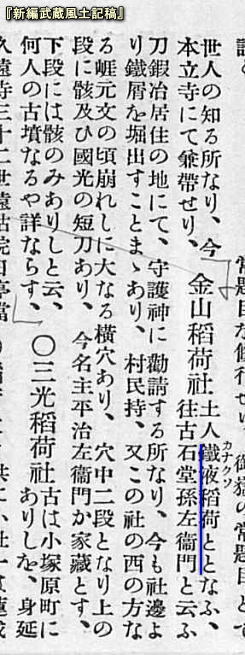 『新編武蔵風土記稿』
世人の知る所なり、今
本立寺にて兼帶せり、
金山稻荷社
土人鐵液稻荷ととなふ、
カナクソ
往古石堂孫左衞門と云ふ
刀鍜冶居住の地にて、守護神に勸請する所なり、今も社邊よ
り鐵屑を堀出すことまゝあり、村民持、又この社の西の方な
る崕元文の頃崩れしに大なる横穴あり、穴中二段となり上の
段に骸及ひ國光の短刀あり、今名主平治左衞門か家藏とす、
下段には骸のみありしと云、
何人の古墳なるや詳ならす、
〇三光稻荷社
古は小塚原町に
ありしを、身延
久遠寺三十二世遠沾院日亭當